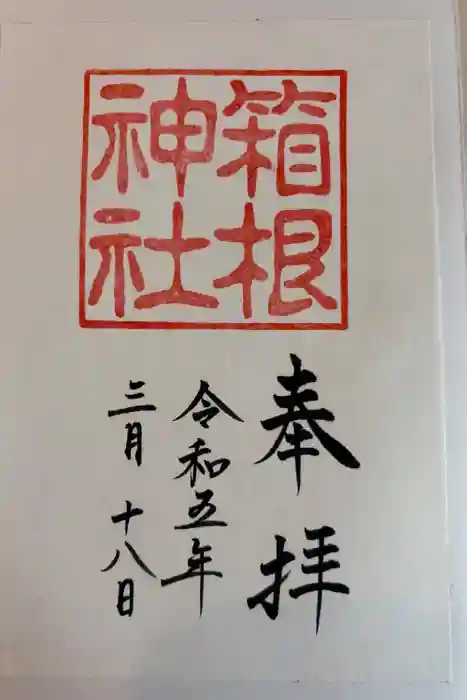 箱根
神社
奉拝
令和五年
三月十八日